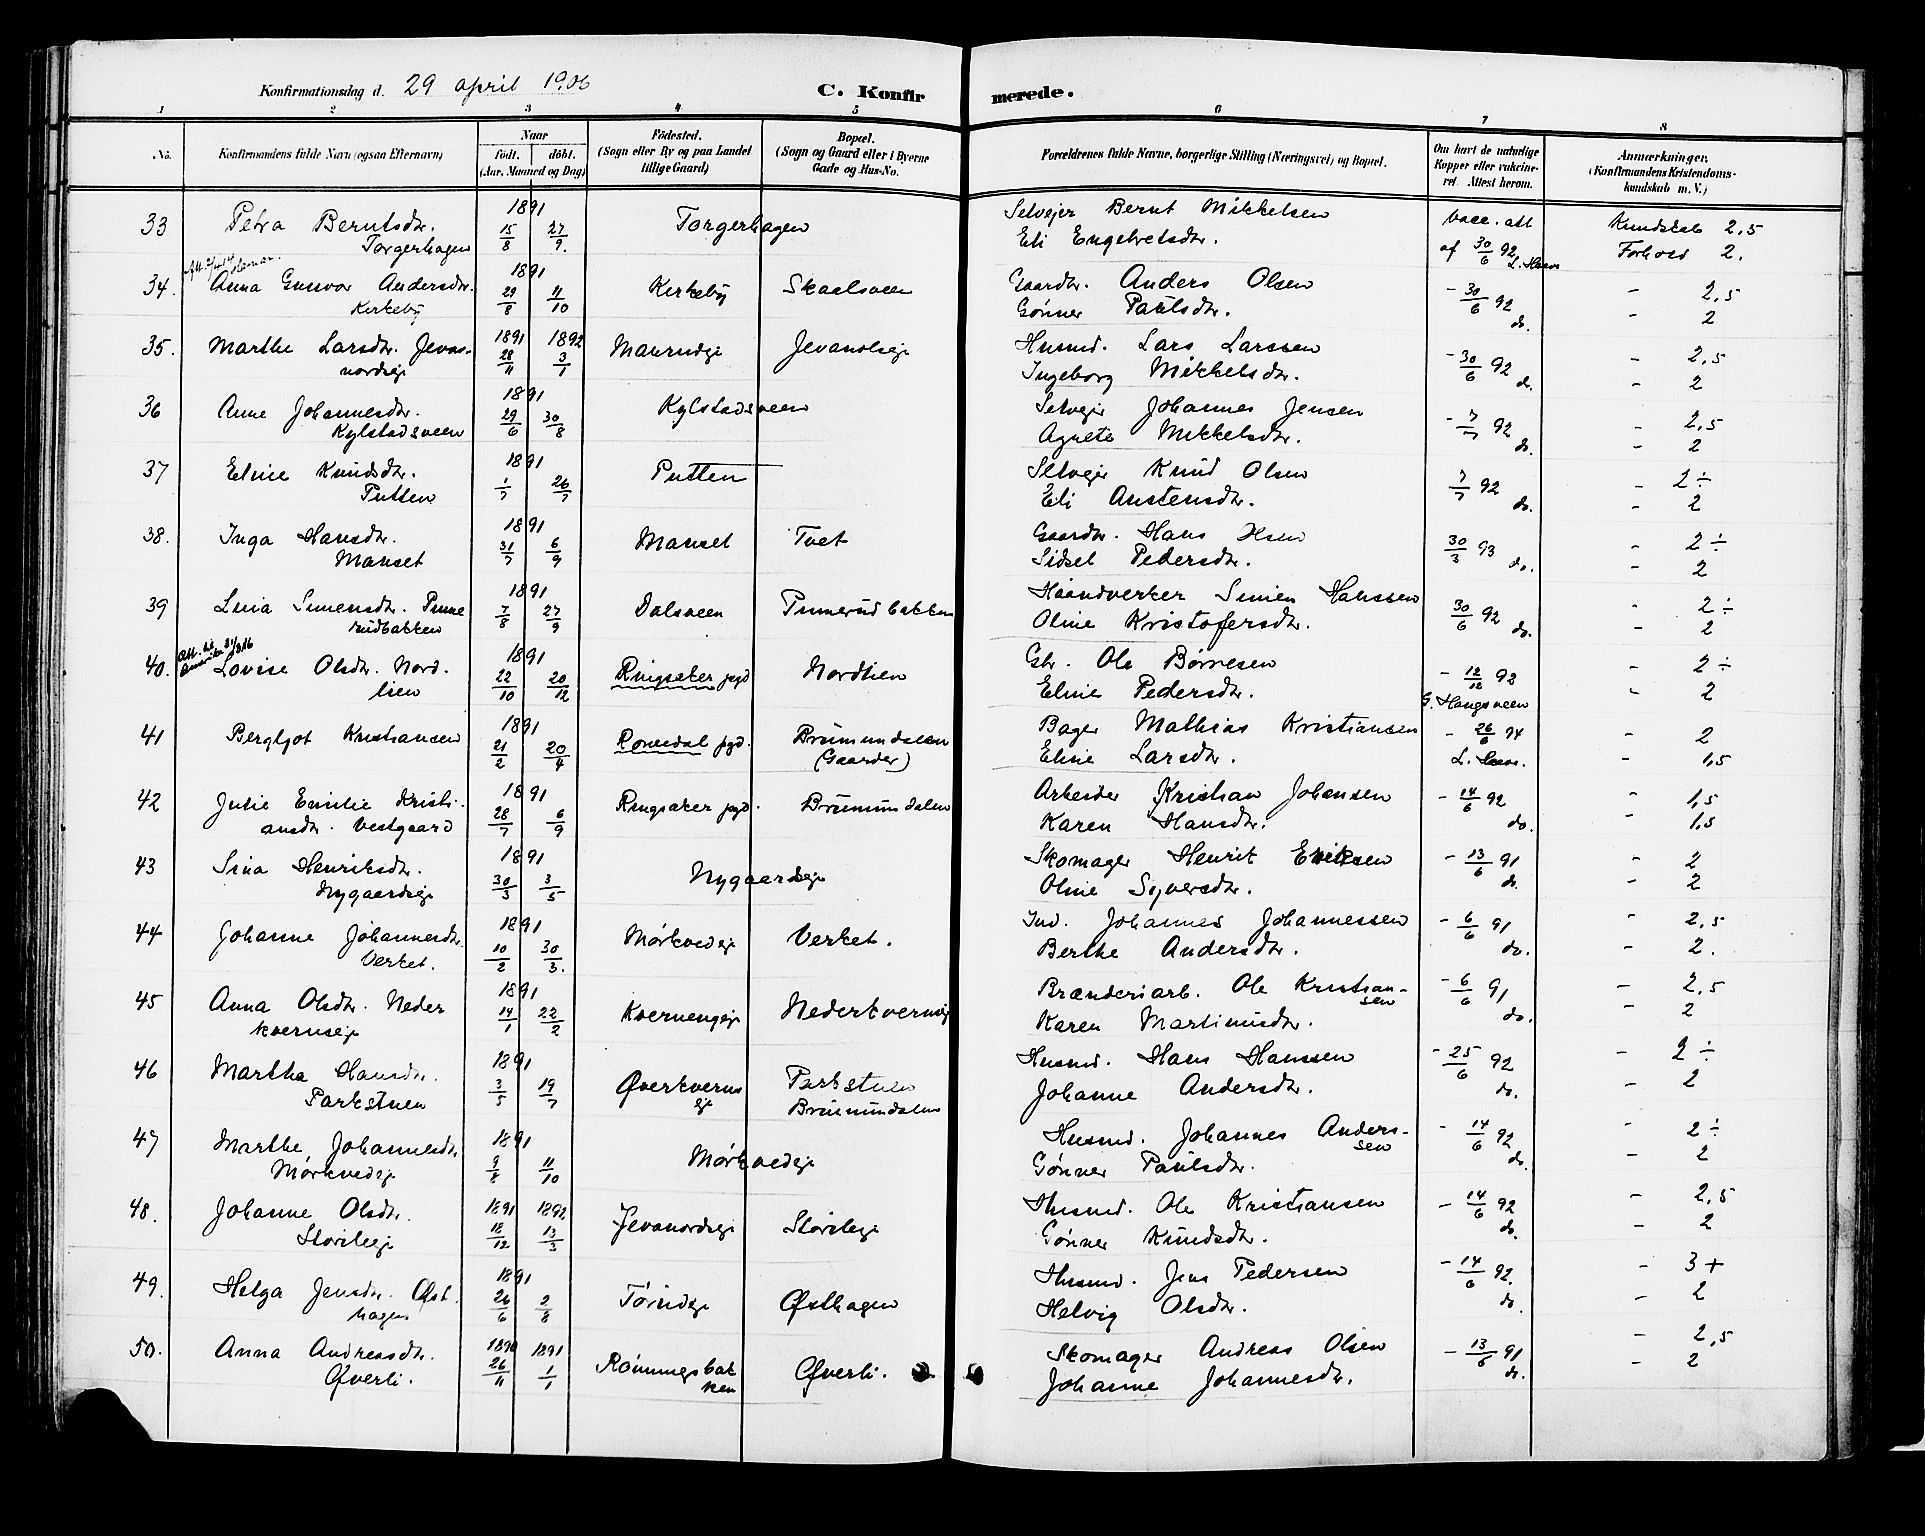 Konfirmationsdag d. 29 april 1906
C. Konfir merede.
1 2 3 4 5 6 7 8
No.
Konfirmandens fulde Navn (ogsaa Efternavn)
Naar
født. döbt.
(Aar, Maaned og Dag)
Födested.
(Sogn eller By og paa Landet
tillige Gaard)
Bopæl.
(Sogn og Gaard eller i Byerne
Gade og Hus-No.
Forældrenes fulde Navne, borgerlige Stilling (Næringsvei) og Bopæl.
Om havt de naturlige
Kopper eller vakcine-
ret. Attest herom.
Anmærkninger,
(Konfirmandens Kristendoms-
kundskab m. V.)
33 Petra Berntsdtr. 1891 Torgerhagen Selvejer Bernt Mikkelsen vacc. att Kundskab 2,5
Torgerhagen 15/8 27/9. Eli Engebretsdtr. af 30/6 92 Forhold 2.
34. Anna Gunvor Andersdtr. 1891 Kirkeby Skaalsveen Gaardbr. Anders Olsen - 30/6 92 - 2,5
Kirkeby 29/8 11/10 Gønner Paulsdtr. do. - 2
35. Marthe Larsdtr. Jevas- 1891 1892 Maurudeje Jevanolseje Husmd. Lars Larssen - 30/6 92 - 2,5
nordseje 28/11 3/1 Ingeborg Mikkelsdtr. do. - 2
36 Anne Johannesdtr. 1891 Kylstadsveen Selvejer Johannes Jensen - 7/7 92 - 2,5
Kylstadsveen 29/6 30/8 Agnete Mikkelsdtr. do. - 2
37 Eline Knudsdtr. 1891 Putten Selvejer Knud Olsen 7/7 92 - 2 ÷
Putten 1/7 26/7 Eli Austensdtr. do. - 2
38. Inga Hansdtr. 1891 Manset Tvet Gaardbr. Hans Olsen 30/3 93 - 2 ÷
Manset 31/7 6/9 Sidsel Pedersdtr. do. - 2
39 Lina Simensdtr. Pinne 1891 Dalsveen Pinnerudbakken Haandverker Simen Hanssen 30/6 92 - 2 ÷
rudbakken 7/8 27/9 Oline Kristofersdtr. do. - 2
40. Lovise Olsdtr. Nord- 1891 Ringsaker pgd Nordlien Gbr. Ole Børresen - 12/12 92 - 2 ÷
lien 22/10 20/12 Eline Pedersdtr. G. Haugsveen - 2
41 Bergljot Kristiansen 1891 Romedal pgd. Brumundalen Bager Mathias Kristiansen - 26/6 94 - 2
21/2 20/4 (Gaarder) Eline Larsdtr. - 1,5
42 Julie Emilie Kristi- 1891 Ringsaker pgd. Brumundalen Arbeider Kristian Johansen - 14/6 92 - 1,5
ansdtr. Vestgaard 28/7 6/9 Karen Hansdtr. do. - 1,5
43 Sina Henriksdtr. 1891 Nygaardseje Skomager Henrik Eriksen - 13/6 91 - 2
Nygaardseje 30/3 3/5 Oline Syversdtr. do. - 2
44 Johanne Johannesdtr. 1891 Mørkvedeje Verket. Ind. Johannes Johannessen - 6/6 91 - 2,5
Verket. 10/2 30/3. Berthe Andersdtr. do. - 2.
45 Anna Olsdtr. Neder 1891 Kvernengeje Nederkvernseje Brænderiarb. Ole Kristian- - 6/6 91 - 2,5
kvernseje 14/1 22/2 sen
Karen Martinusdtr. do. - 2
46 Martha Hansdtr. 1891 Øverkverns Parkstuen Husmd. Hans Hanssen - 25/6 92 - 2 ÷
Parkstuen 3/5 19/7 eje Brumundalen Johanne Andersdtr. do. - 2
47 Marthe Johannesdtr. 1891 Mørkvedeje Husmd. Johannes Anders- - 14/6 92 - 2 ÷
Mørkvedeje 11/10 sen
Gønner Paulsdtr. do. - 2
48. Johanne Olsdtr. 1891 1892 Jevanordseje Storileje Husmd. Ole Kristiansen - 14/6 92 - 2,5
Storileje 18/12 13/3 Gønner Knudsdtr. do. - 2
49. Helga Jensdtr. Øst- 1891 Tørudeje Østhagen Husmd. Jens Pedersen - 14/6 92. - 3 +
hagen 26/6 2/8 Helvig Olsdtr. do. - 2
50. Anna Andreasdtr. 1890 1891 Rønningsbak Øverli. Skomager Andreas Olsen - 13/6 91 - 2,5
Øverli. 26/11 1/1 ken Johanne Johannesdtr. do. - 2